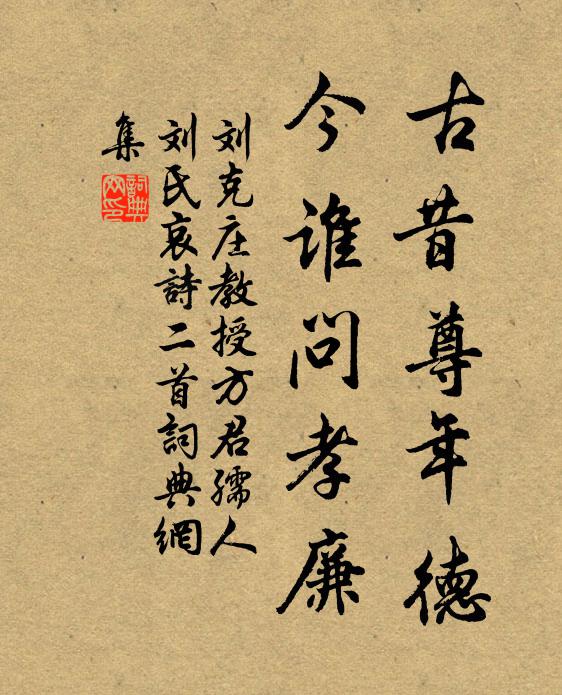 古昔尊年德
今谁问孝廉
刘克庄教授方君孺人
刘氏哀詩二首詞典網
集
詞典
网印